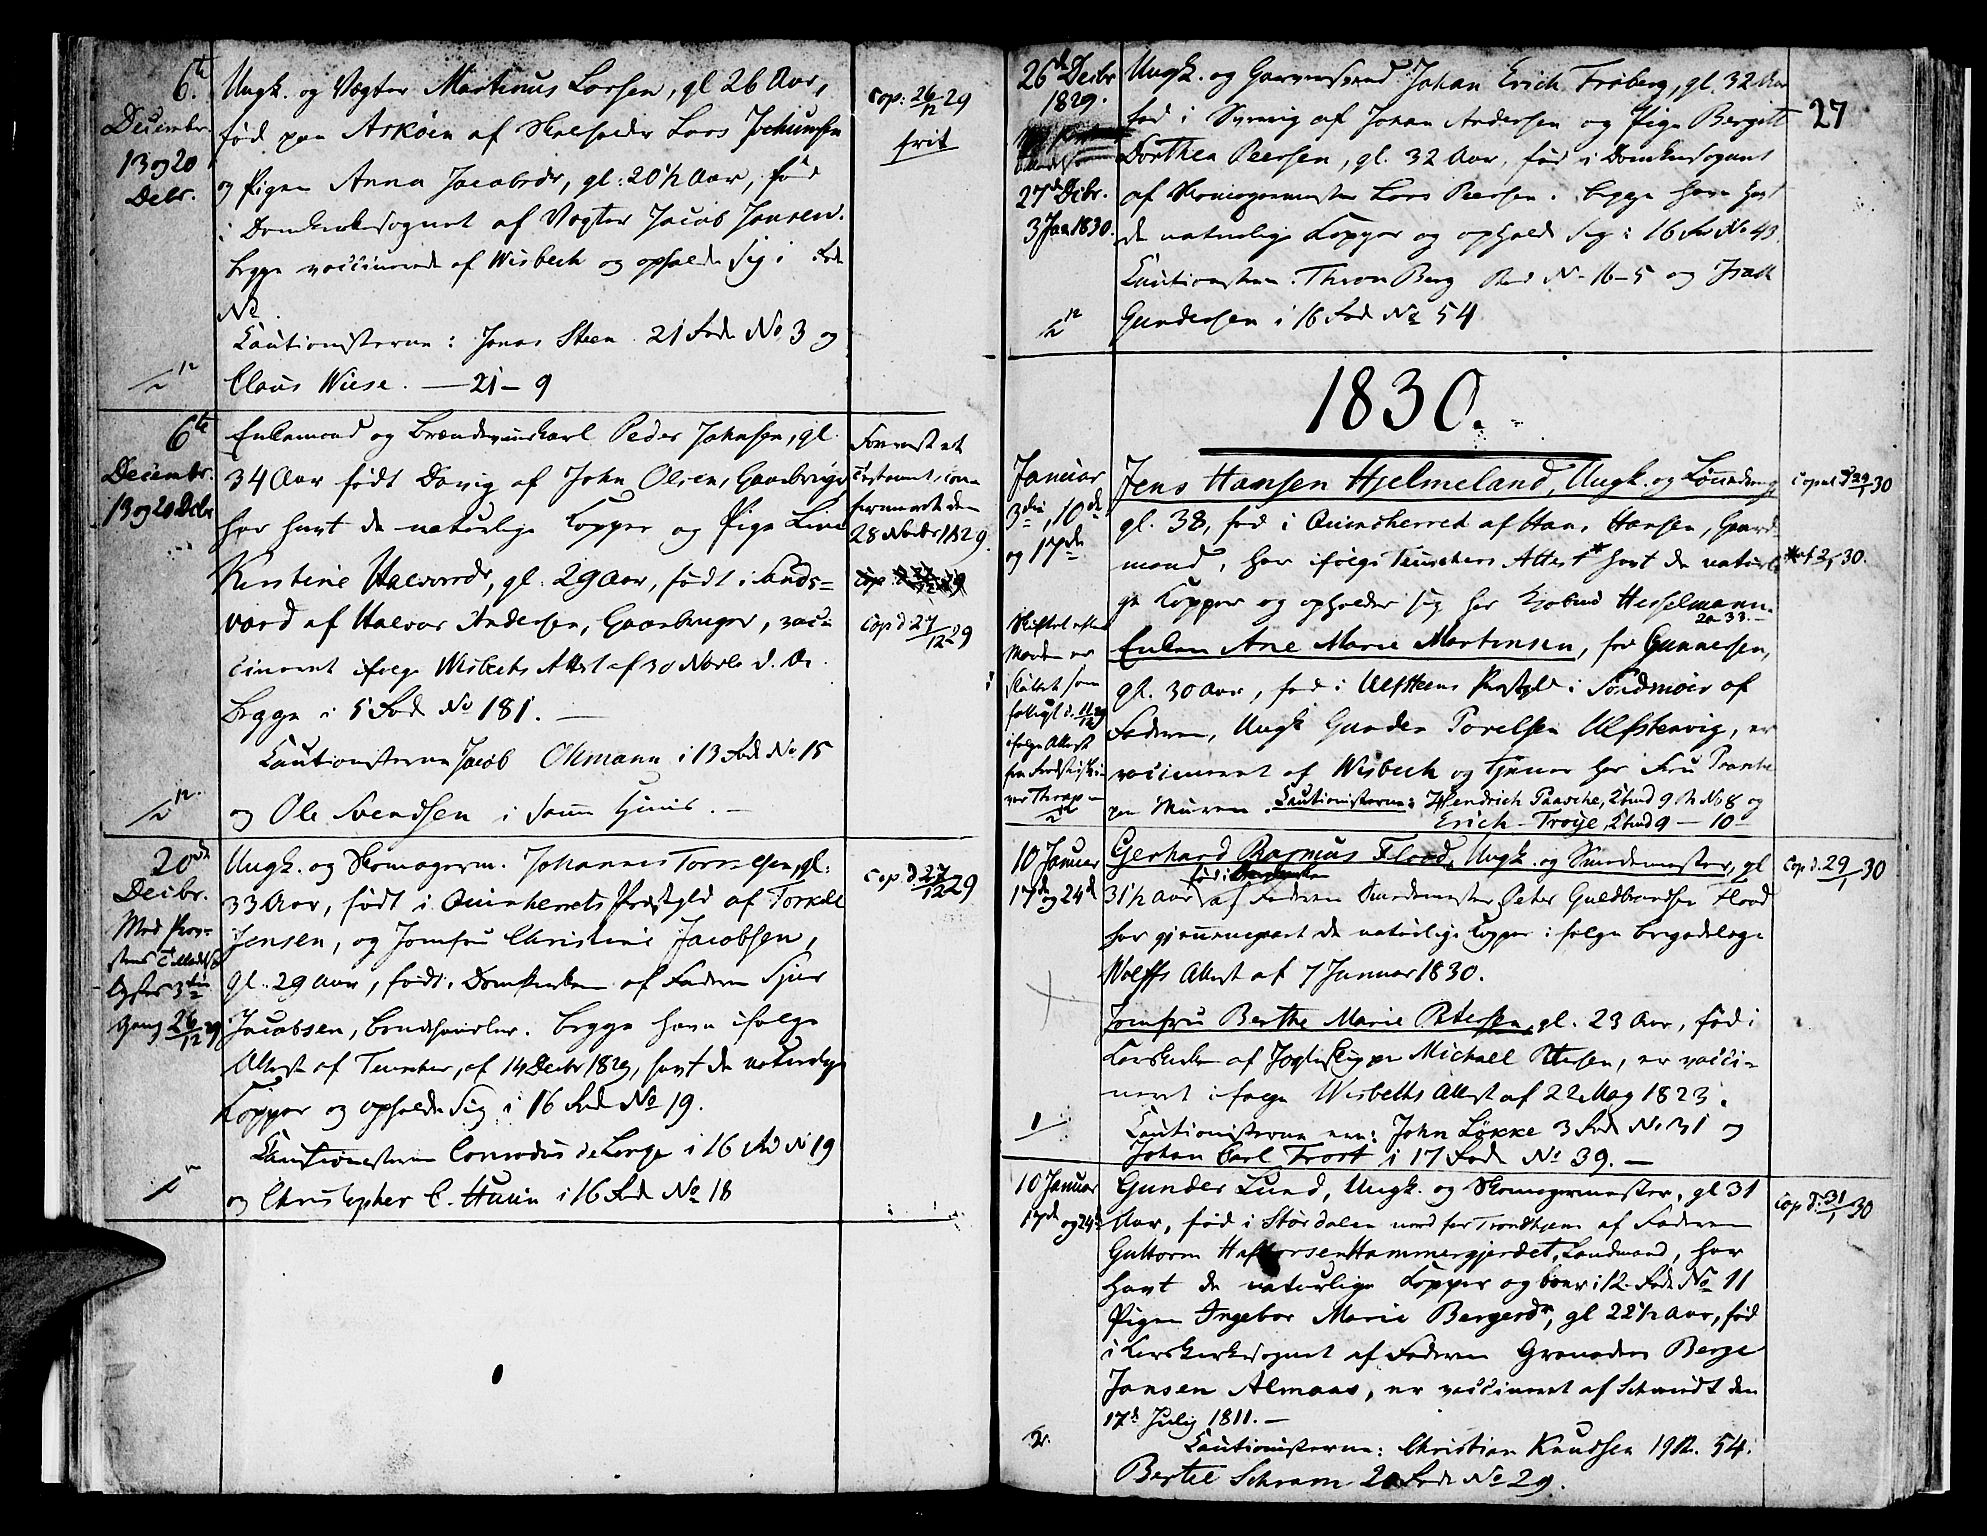 6te
Decembr.
13 og 20
Debr.
Ungk. og Vægter Martinus Larsen, gl 26 Aar,
født paa Askøen af Lars Jochumsen
og Pigen Anna Jacobsdr, gl: 20½ Aar, født
i Domkirkesognet af Vægter Jacob Jansen.
begge vaccinerede af Wisbech og opholde sig i Rode
No
Cautionisterne: Jonas Steen 21 Rode No 3 og
Claus Wiese. — 21 — 9
cop: 26/12 29
frit
6te
Decembr.
13 og 20 Debr
Enkemand og Brændevinskarl Peder Johnsen, gl.
34 Aar født Davig af John Olsen, Gaardbruger
har havt de naturlige Kopper og Pige Line
Kirstine Halvorsdr, gl. 29 Aar, født i Sands-
værd af Halvor Andersen, Gaardbruger, vac-
cineret ifølge Wisbechs Attest af 30 Novbr d. A.
begge i 5 Rode No 181. —
Cautionisterne Jacob Oltmann i 13 Rode No 15
og Ole Svendsen i samme Huus. —
28 Novbr 1829.
cop d 27/12 29
20de
Decbr.
Med Prov-
stens Tilladelse
lyses 3die
Gang 26/12 29
Ungk. og Skomagerm. Johannes Torkelsen, gl:
33 Aar, født i Quinherrets Præstegld af Torkell
Jensen, og Jomfru Christine Jacobsen,
gl. 29 Aar, født i Domkirken af Faderen Sjur
Jacobsen, Brændehandler. begge have ifølge
Attest af Tuscher, af 14 Decbr 1829, havt de naturlige
Kopper og opholde sig i 16 Rode No 19.
Cautionisterne Conradus de Lange i 16 Rd No 19
og Christopher C. Husin i 16 Rode No 18
cop. d 27/12 29
27
26de Decbr
1829.
27de Debr.
3 Jan 1830.
Ungk. og Garversvend Johan Erich Froberg, gl. 32 Aar
født i Sverrig af Johan Andersen og Pige Bergitte
Dorthea Peersen, gl. 32 Aar, født i Domkirkesognet
af Skomagermester Lars Peersen. begge have havt
de naturlige Kopper og opholde sig i 16 Rd No 43
Cautionisterne: Thron Berg Rd No 16-5 og Isach
Gundersen i 16 Rod No 54
1830.
Januar
3die, 10de
og 17de
Jens Hansen Hjelmeland, Ungk. og
gl. 38, født i Quinsherred af Hans Hansen, Gaard-
mand, har ifølge Tuschers Attest* havt de naturli-
ge Kopper og opholder sig hos Hesselmann
20-33.—
Enken Ane Marie Martensen, før Gunnersen,
gl. 30 Aar, født i Ulfsteens Præstegld i Søndmøer af
Faderen, Ungk Gunder Torelsen Ulfstenvig, er
vaccineret af Wisbech og tjener hos Fru
paa Muren. Cautionisterne: Hendrich Paasche, 2 bud 9 R No 8 og
Erich Troye, 2 bud 9 — 10 —
Skiftet efter
Manden er
sluttet som
følge d. 11/12 29
ifølge Attest
fra Skifteskri-
ver Thrap —
copul d 24/1 30
*af 2/1 30.
10 Januar
17de og 24de
Gerhard Rasmus Flood, Ungk. og Smedemester, gl
31½ Aar født i af Faderen Smedemester Peter Guldbrandsen Flood
har gjennemgaaet de naturlige Kopper ifølge Brigadelæge
Wolffs Attest af 7 Januar 1830.
Jomfru Berthe Marie Petersen, gl. 23 Aar, født i
Korskirken af Michael Petersen, er vacci-
neret ifølge Wisbechs Attest af 22 May 1823.
Cautionisterne ere: John Løkke 3 Rode No 31 og
Johan Carl Trost i 17 Rode No 39. —
cop d. 29/1 30
1
10 Januar
17de og 24de
Gunder Lund, Ungk. og Skomagermester, gl 31
Aar, født i Stördalen nord for Trondhjem af Faderen
Guttorm Haftorsen Hammergjerdet, Landmand, har
havt de naturlige Kopper og boer i 12 Rode No 11
Pigen Ingebor Marie Bergersdr, gl 22½ Aar, født
i Korskirkesognet af Faderen Grenadeer Berge
Jansen Almaas, er vaccineret af Schmidt den
17de July 1811. —
Cautionisterne: Christian Knudsen 19 R. 54.
Bertel Schram 20 Rode No 29.
cop d: 31/1 30
2.